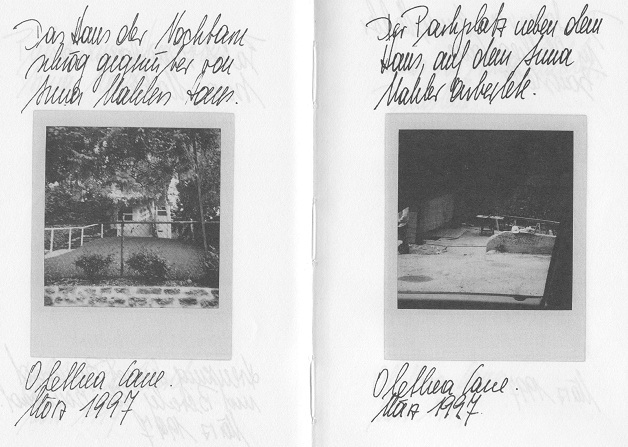 Das Haus der Nachbarn
schräg gegenüber von
Anna Mahlers Haus.
Oletha Cane.
März 1997
Der Parkplatz neben dem
Haus, auf dem Anna
Mahler arbeitete.
Oletha Cane.
März 1997.